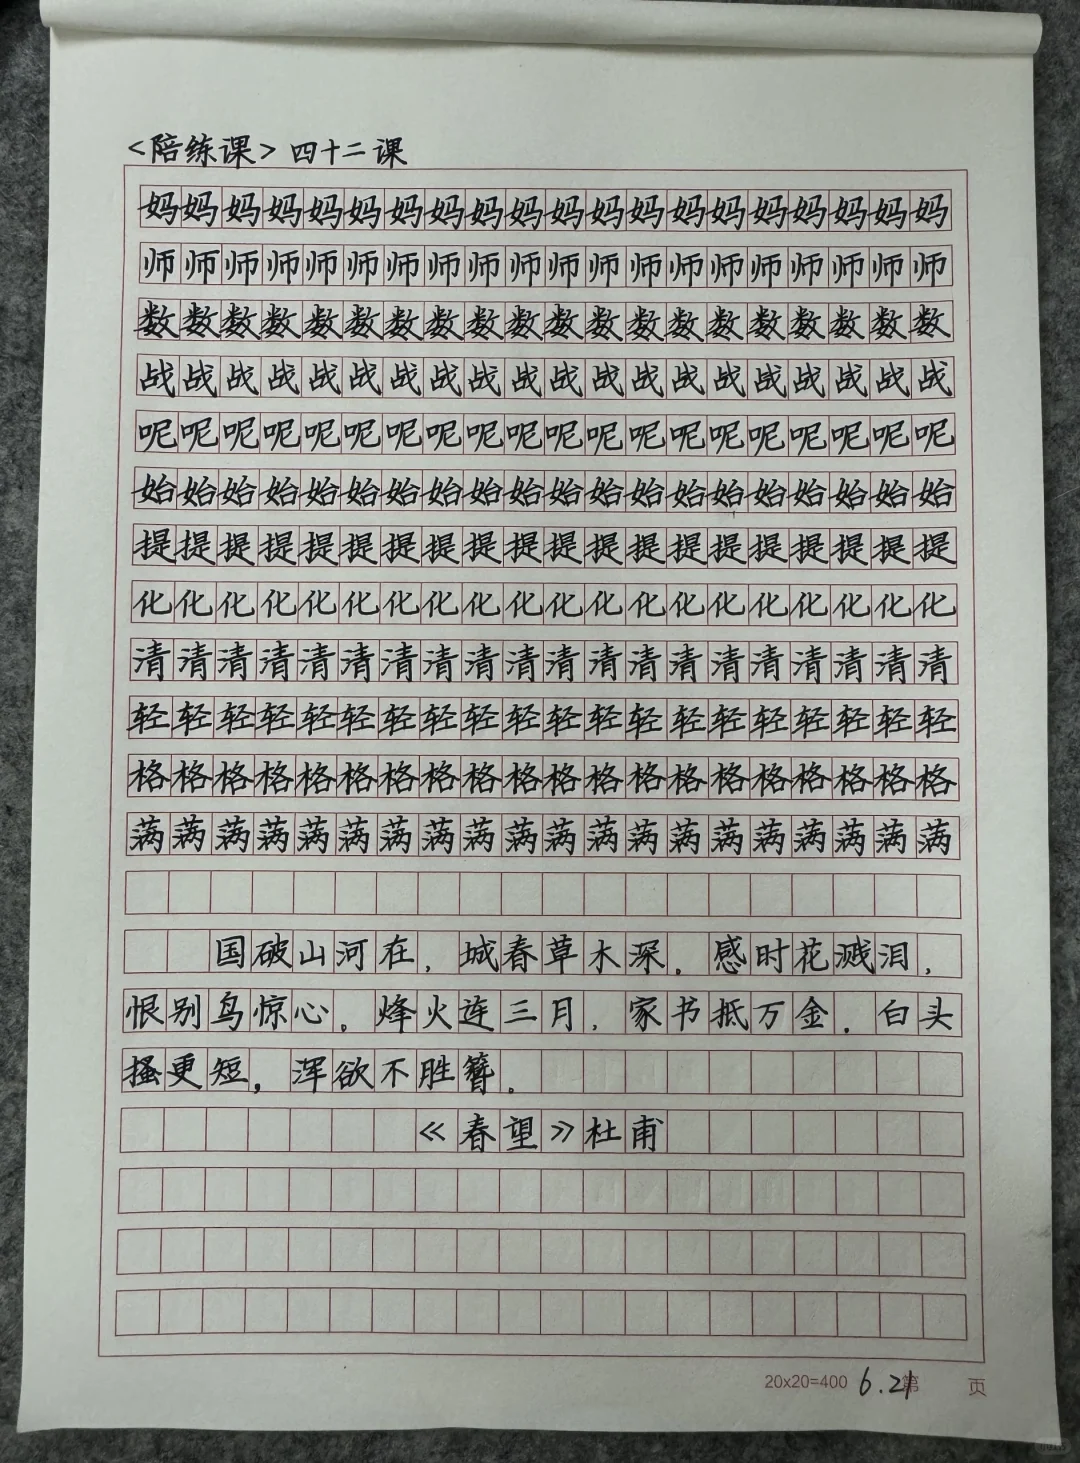 <陪练课> 四十二课
妈妈妈妈妈妈妈妈妈妈妈妈妈妈妈妈妈妈妈妈
师师师师师师师师师师师师师师师师师师师师
数数数数数数数数数数数数数数数数数数数数
战战战战战战战战战战战战战战战战战战战战
呢呢呢呢呢呢呢呢呢呢呢呢呢呢呢呢呢呢呢呢
始始始始始始始始始始始始始始始始始始始始
提提提提提提提提提提提提提提提提提提提提
化化化化化化化化化化化化化化化化化化化化
清清清清清清清清清清清清清清清清清清清清
轻轻轻轻轻轻轻轻轻轻轻轻轻轻轻轻轻轻轻轻
格格格格格格格格格格格格格格格格格格格格
满满满满满满满满满满满满满满满满满满满满
国破山河在，城春草木深。感时花溅泪，
恨别鸟惊心。烽火连三月，家书抵万金。白头
搔更短，浑欲不胜簪。
《春望》杜甫
20x20=400 6.21 第 页